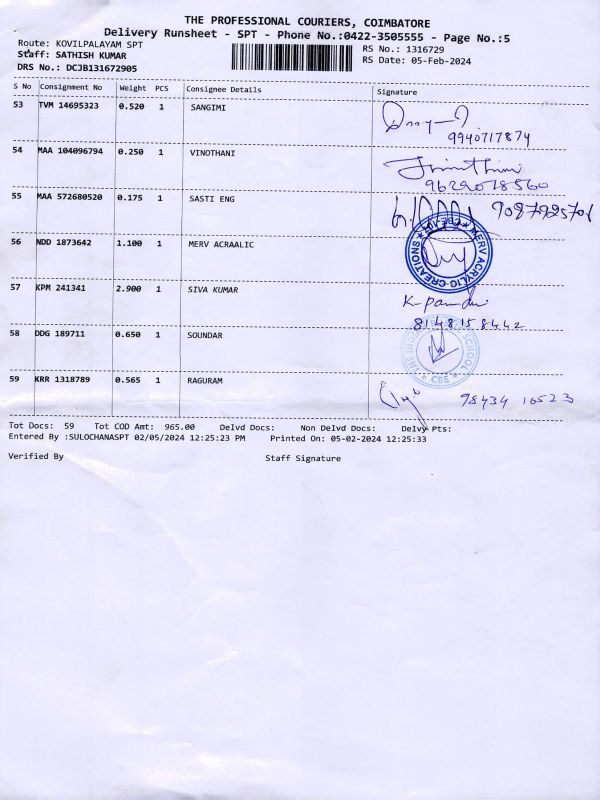 THE PROFESSIONAL COURIERS, COIMBATORE
Delivery Runsheet - SPT - Phone No.:0422-3505555 - Page No.:5
Route: KOVILPALAYAM SPT
RS No.: 1316729
Staff: SATHISH KUMAR
RS Date: 05-Feb-2024
DRS No.: DCJB131672905
S No Consignment No Weight PCS Consignee Details Signature
53 TVM 14695323 0.520 1 SANGIMI
9940717874
54 MAA 104096794 0.250 1 VINOTHANI
9629078560
55 MAA 572680520 0.175 1 SASTI ENG
9087925701
56 NDD 1873642 1.100 1 MERV ACRAALIC
MERV ACRYLIC CREATIONS
57 KPM 241341 2.900 1 SIVA KUMAR
K. pandi
8148158442
58 DDG 189711 0.650 1 SOUNDAR
SCHOOL
CBE
59 KRR 1318789 0.565 1 RAGURAM
98434 16523
Tot Docs: 59 Tot COD Amt: 965.00 Delvd Docs: Non Delvd Docs: Delvy Pts:
Entered By :SULOCHANASPT 02/05/2024 12:25:23 PM Printed On: 05-02-2024 12:25:33
Verified By Staff Signature